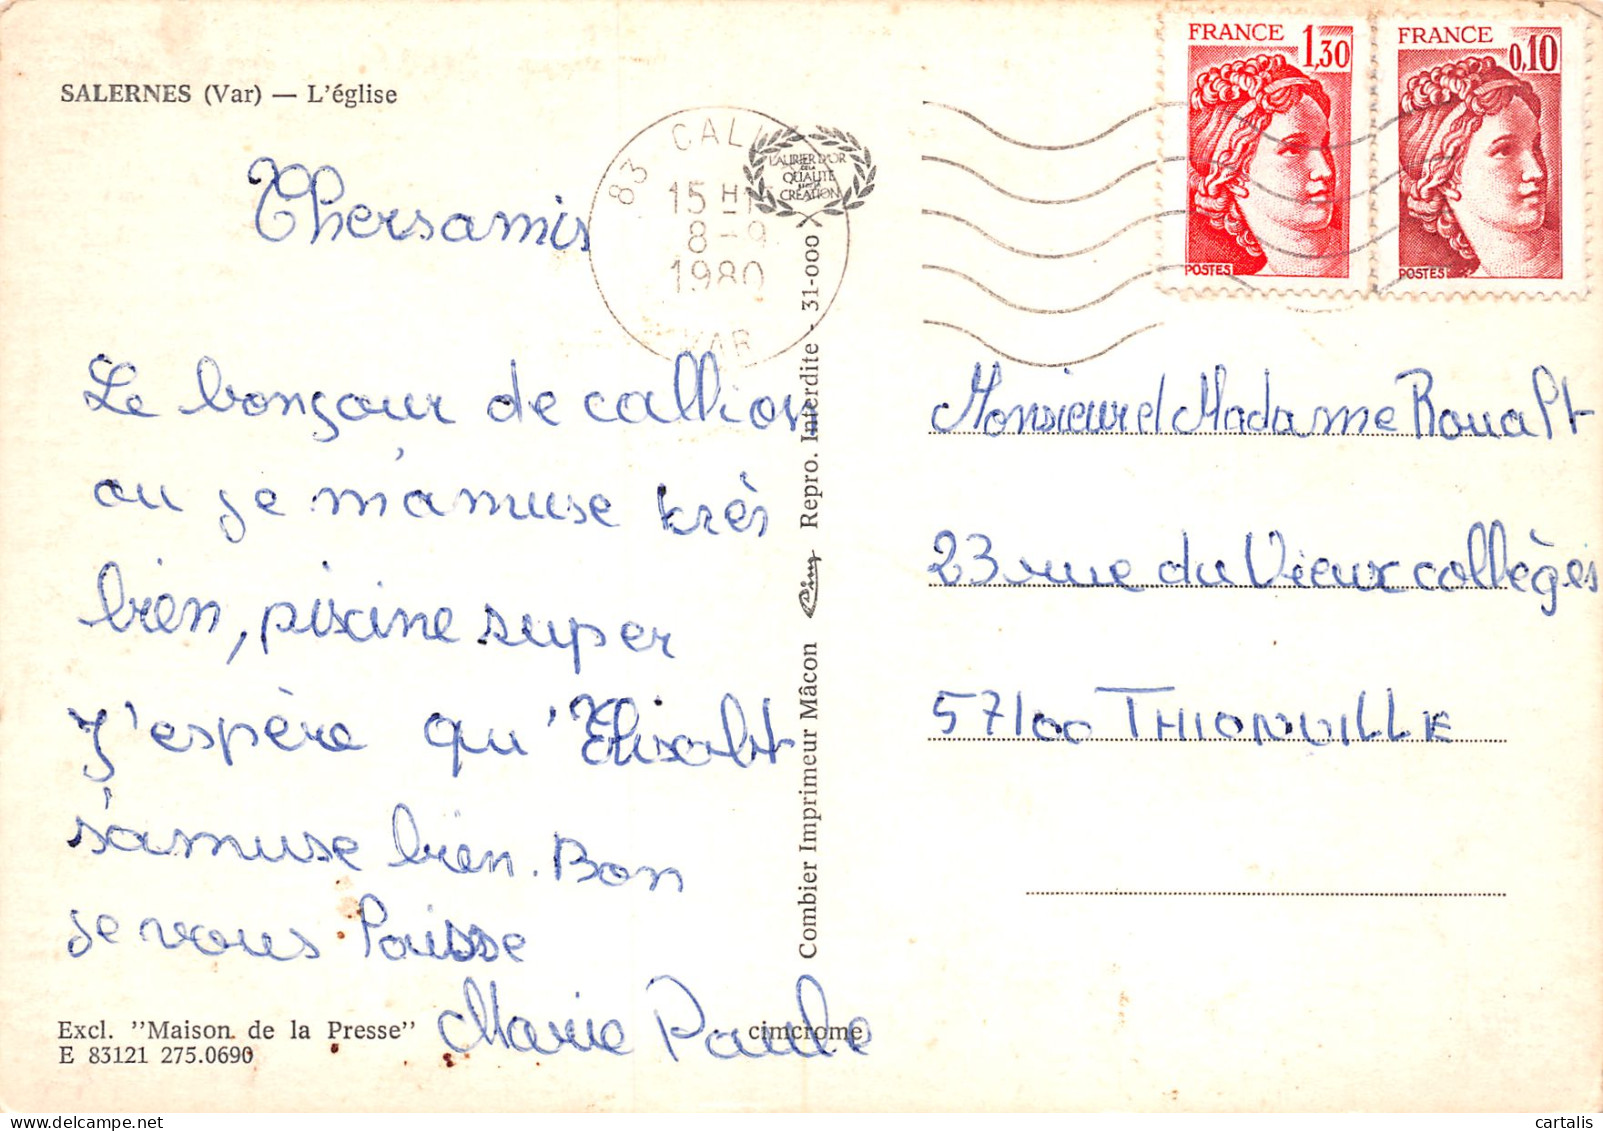 SALERNES (Var) — L'église
Thersamis
Le bonsour de callion
ou je m'amuse très
bien, piscine super
J'espère qu'Elisabt
s'amuse bien. Bon
je vous laisse
Marie Paule
Excl. "Maison de la Presse"
E 83121 275.0690
cimcrome
Combier Imprimeur Mâcon Cim Repro. Interdite - 31-000
LAURIER D'OR
DE LA
QUALITÉ
CRÉATION
83 CALL
15 H
8 - 9
1980
VAR
FRANCE 1,30
POSTES
FRANCE 0,10
POSTES
Monsieur et Madame Roualt
23 rue du Vieux collèges
57100 THIONVILLE
cartalis
www.delcampe.net